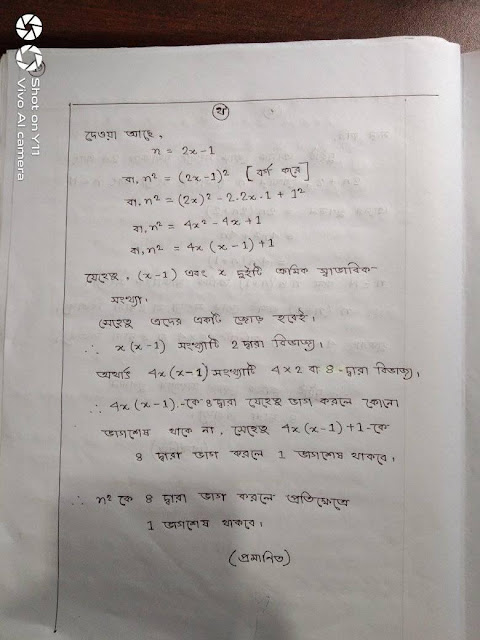 Shot on Y11
Vivo AI camera
খ
দেওয়া আছে,
n = 2x-1
বা, n² = (2x-1)² [বর্গ করে]
বা, n² = (2x)² - 2.2x.1 + 1²
বা, n² = 4x² - 4x + 1
বা, n² = 4x (x - 1) + 1
যেহেতু, (x-1) এবং x দুইটি ক্রমিক স্বাভাবিক
সংখ্যা।
সেহেতু এদের একটি জোড় হবেই।
∴ x(x-1) সংখ্যাটি 2 দ্বারা বিভাজ্য।
অর্থাৎ 4x(x-1) সংখ্যাটি 4×2 বা 8-দ্বারা বিভাজ্য।
∴ 4x(x-1).-কে 8 দ্বারা যেহেতু ভাগ করলে কোনো
ভাগশেষ থাকে না, সেহেতু 4x(x-1)+1-কে
8 দ্বারা ভাগ করলে 1 ভাগশেষ থাকবে।
∴ n² কে 8 দ্বারা ভাগ করলে প্রতিক্ষেত্রে
1 ভাগশেষ থাকবে।
(প্রমাণিত)